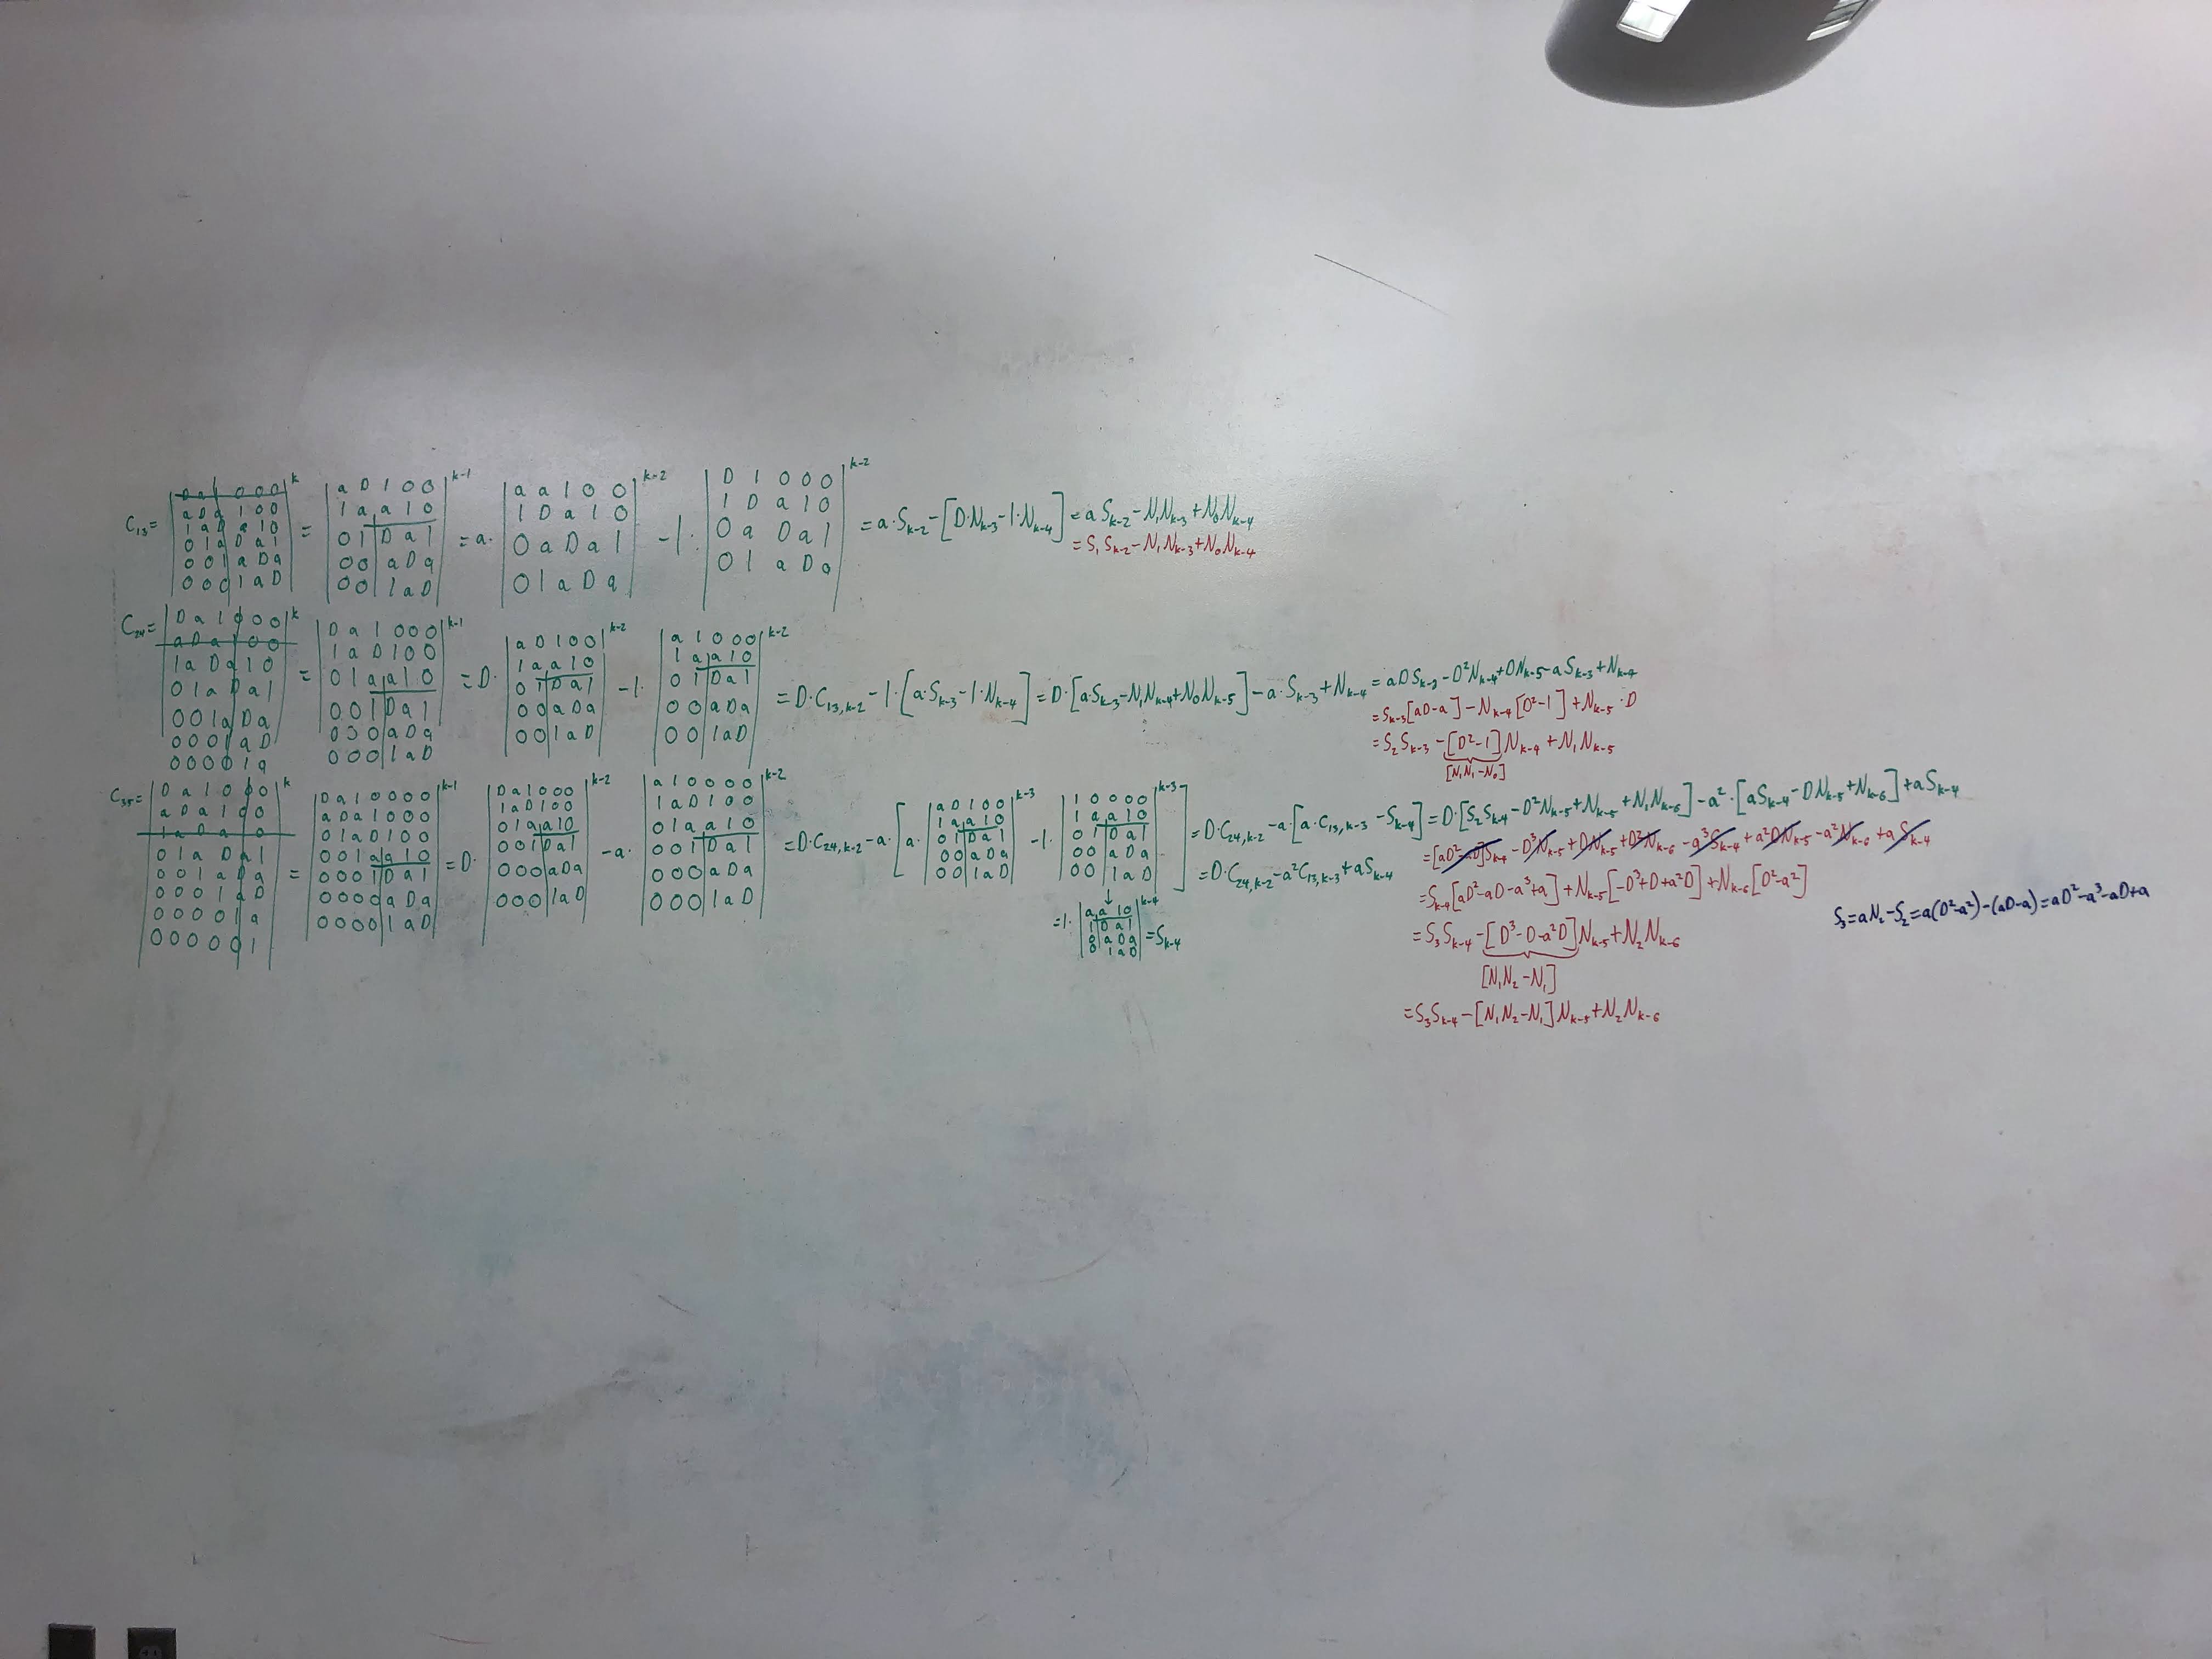 C₁₃ = |D a 1 0 0 0; a D a 1 0 0; 1 a D a 1 0; 0 1 a D a 1; 0 0 1 a D a; 0 0 0 1 a D|^k = |a D 1 0 0; 1 a a 1 0; 0 1 D a 1; 0 0 a D a; 0 0 1 a D|^{k-1} = a· |a a 1 0 0; 1 D a 1 0; 0 a D a 1; 0 1 a D a|^{k-2} - 1· |D 1 0 0 0; 1 D a 1 0; 0 a D a 1; 0 1 a D a|^{k-2} = a·S_{k-2} - [D·N_{k-3} - 1·N_{k-4}] = a S_{k-2} - N₁N_{k-3} + N₀N_{k-4}
= S₁S_{k-2} - N₁N_{k-3} + N₀N_{k-4}
C₂₄ = |D a 1 0 0 0; a D a 1 0 0; 1 a D a 1 0; 0 1 a D a 1; 0 0 1 a D a; 0 0 0 1 a D; 0 0 0 0 1 a|^k = |D a 1 0 0 0; 1 a D 1 0 0; 0 1 a a 1 0; 0 0 1 D a 1; 0 0 0 a D a; 0 0 0 1 a D|^{k-1} = D· |a D 1 0 0; 1 a a 1 0; 0 1 D a 1; 0 0 a D a; 0 0 1 a D|^{k-2} - 1· |a 1 0 0 0; 1 a a 1 0; 0 1 D a 1; 0 0 a D a; 0 0 1 a D|^{k-2} = D·C_{13,k-2} - 1·[a S_{k-3} - 1·N_{k-4}] = D·[a·S_{k-3} - N₁N_{k-4} + N₀N_{k-5}] - a·S_{k-3} + N_{k-4} = aDS_{k-3} - D²N_{k-4} + DN_{k-5} - aS_{k-3} + N_{k-4}
= S_{k-3}[aD-a] - N_{k-4}[D²-1] + N_{k-5}·D
= S₂S_{k-3} - [D²-1]N_{k-4} + N₁N_{k-5}
[N₁N₁-N₀]
C₃₅ = |D a 1 0 0 0; a D a 1 0 0; 1 a D a 1 0; 0 1 a D a 1; 0 0 1 a D a; 0 0 0 1 a D; 0 0 0 0 1 a; 0 0 0 0 0 1|^k = |D a 1 0 0 0 0; a D a 1 0 0 0; 0 1 a D 1 0 0; 0 0 1 a a 1 0; 0 0 0 1 D a 1; 0 0 0 0 a D a; 0 0 0 0 1 a D|^{k-1} = D· |D a 1 0 0 0; 1 a D 1 0 0; 0 1 a a 1 0; 0 0 1 D a 1; 0 0 0 a D a; 0 0 0 1 a D|^{k-2} - a· |a 1 0 0 0 0; 1 a D 1 0 0; 0 1 a a 1 0; 0 0 1 D a 1; 0 0 0 a D a; 0 0 0 1 a D|^{k-2} = D·C_{24,k-2} - a·[a· |a D 1 0 0; 1 a a 1 0; 0 1 D a 1; 0 0 a D a; 0 0 1 a D|^{k-3} - 1· |1 0 0 0 0; 1 a a 1 0; 0 1 D a 1; 0 0 a D a; 0 0 1 a D|^{k-3}] = D·C_{24,k-2} - a·[a·C_{13,k-3} - S_{k-4}] = D·[S₂S_{k-4} - D²N_{k-5} + N_{k-5} + N₁N_{k-6}] - a²·[aS_{k-4} - DN_{k-5} + N_{k-6}] + aS_{k-4}
↓
= 1· |a a 1 0; 1 D a 1; 0 a D a; 0 1 a D|^{k-4} = S_{k-4}
= D·C_{24,k-2} - a²C_{13,k-3} + aS_{k-4}
= [aD²-aD]S_{k-4} - D³N_{k-5} + DN_{k-5} + D²N_{k-6} - a³S_{k-4} + a²DN_{k-5} - a²N_{k-6} + aS_{k-4}
= S_{k-4}[aD²-aD-a³+a] + N_{k-5}[-D³+D+a²D] + N_{k-6}[D²-a²]
= S₃S_{k-4} - [D³-D-a²D]N_{k-5} + N₂N_{k-6}
[N₁N₂-N₁]
= S₃S_{k-4} - [N₁N₂-N₁]N_{k-5} + N₂N_{k-6}
S₃ = aN₂-S₂ = a(D²-a²)-(aD-a) = aD²-a³-aD+a